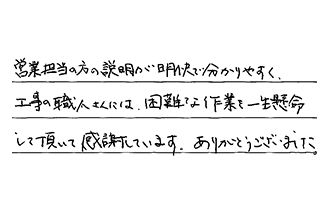 営業担当の方の説明が明快で分かりやすく、
工事の職人さんには、困難な作業を一生懸命
して頂いて感謝しています。ありがとうございました。